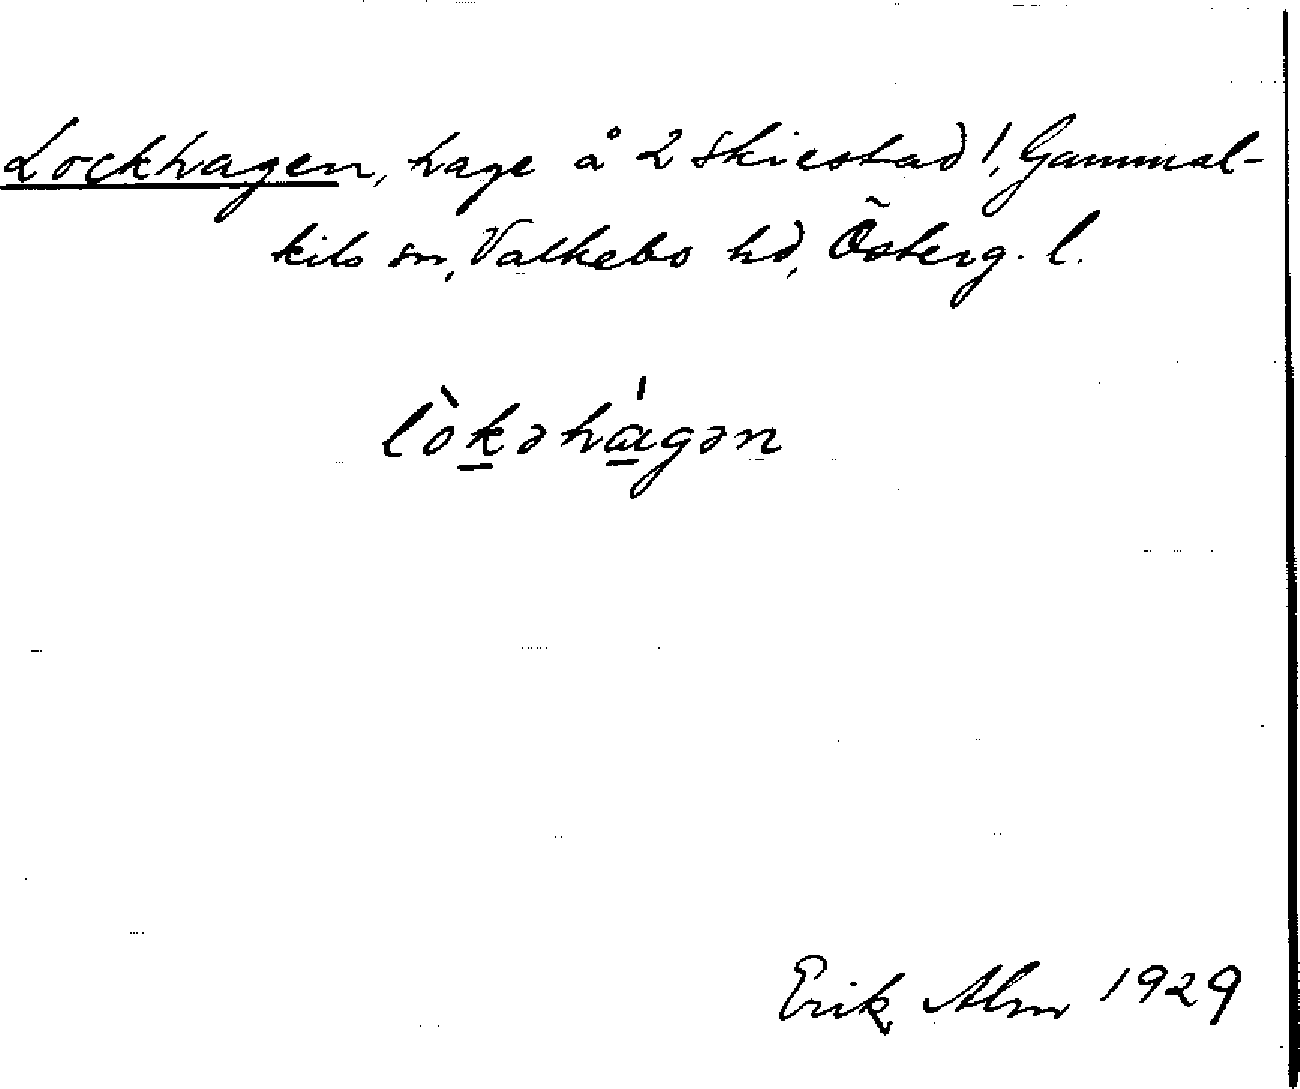 Lockhagen, hage å 2 Skiestad 1, Gammal-
kils sn, Valkebo hd, Österg. l.
lòkəhágən
Erik Alm 1929